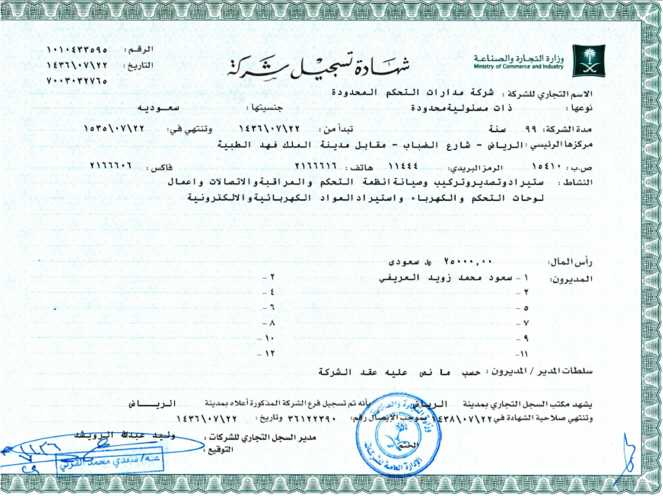 الرقم: ١٠١٠٤٣٣٥٩٥
التاريخ: ١٤٣٦/٠٧/٢٢
٧٠٠٣٠٣٢٧٦٥
شهادة تسجيل شركة
وزارة التجارة والصناعة
Ministry of Commerce and Industry
الاسم التجاري للشركة: شركة مدارات التحكم المحدودة
نوعها: ذات مسئولية محدودة جنسيتها: سعوديه
مدة الشركة: ٩٩ سنة تبدأ من: ١٤٣٦/٠٧/٢٢ وتنتهي في: ١٥٣٥/٠٧/٢٢
مركزها الرئيسي: الرياض - شارع الضباب - مقابل مدينة الملك فهد الطبية
ص.ب: ١٥٤١٠ الرمز البريدي: ١١٤٤٤ هاتف: ٢١٦٦٦١٦ فاكس: ٢١٦٦٦٠٦
النشاط: ستيراد وتصدير وتركيب وصيانة انظمة التحكم والمراقبة والاتصالات واعمال
لوحات التحكم والكهرباء واستيراد المواد الكهربائية والالكترونية
رأس المال: ٢٥٠٠٠,٠٠ ﷼ سعودى
المديرون: ١- سعود محمد زويد العريفي ٢-
٣- ٤-
٥- ٦-
٧- ٨-
٩- ١٠-
١١- ١٢-
سلطات المدير / المديرون: حسب ما نص عليه عقد الشركة
يشهد مكتب السجل التجاري بمدينة الرياض بأنه تم تسجيل فرع الشركة المذكورة أعلاه بمدينة الرياض
وتنتهي صلاحية الشهادة في ١٤٣٨/٠٧/٢٢ بموجب الإيصال رقم: ٣٦١٢٢٣٩٠ وتاريخ: ١٤٣٦/٠٧/٢٢
مدير السجل التجاري للشركات: وليد عبدالله الرويشد
التوقيع:
الختم
وزارة التجارة والصناعة
الإدارة العامة للشركات